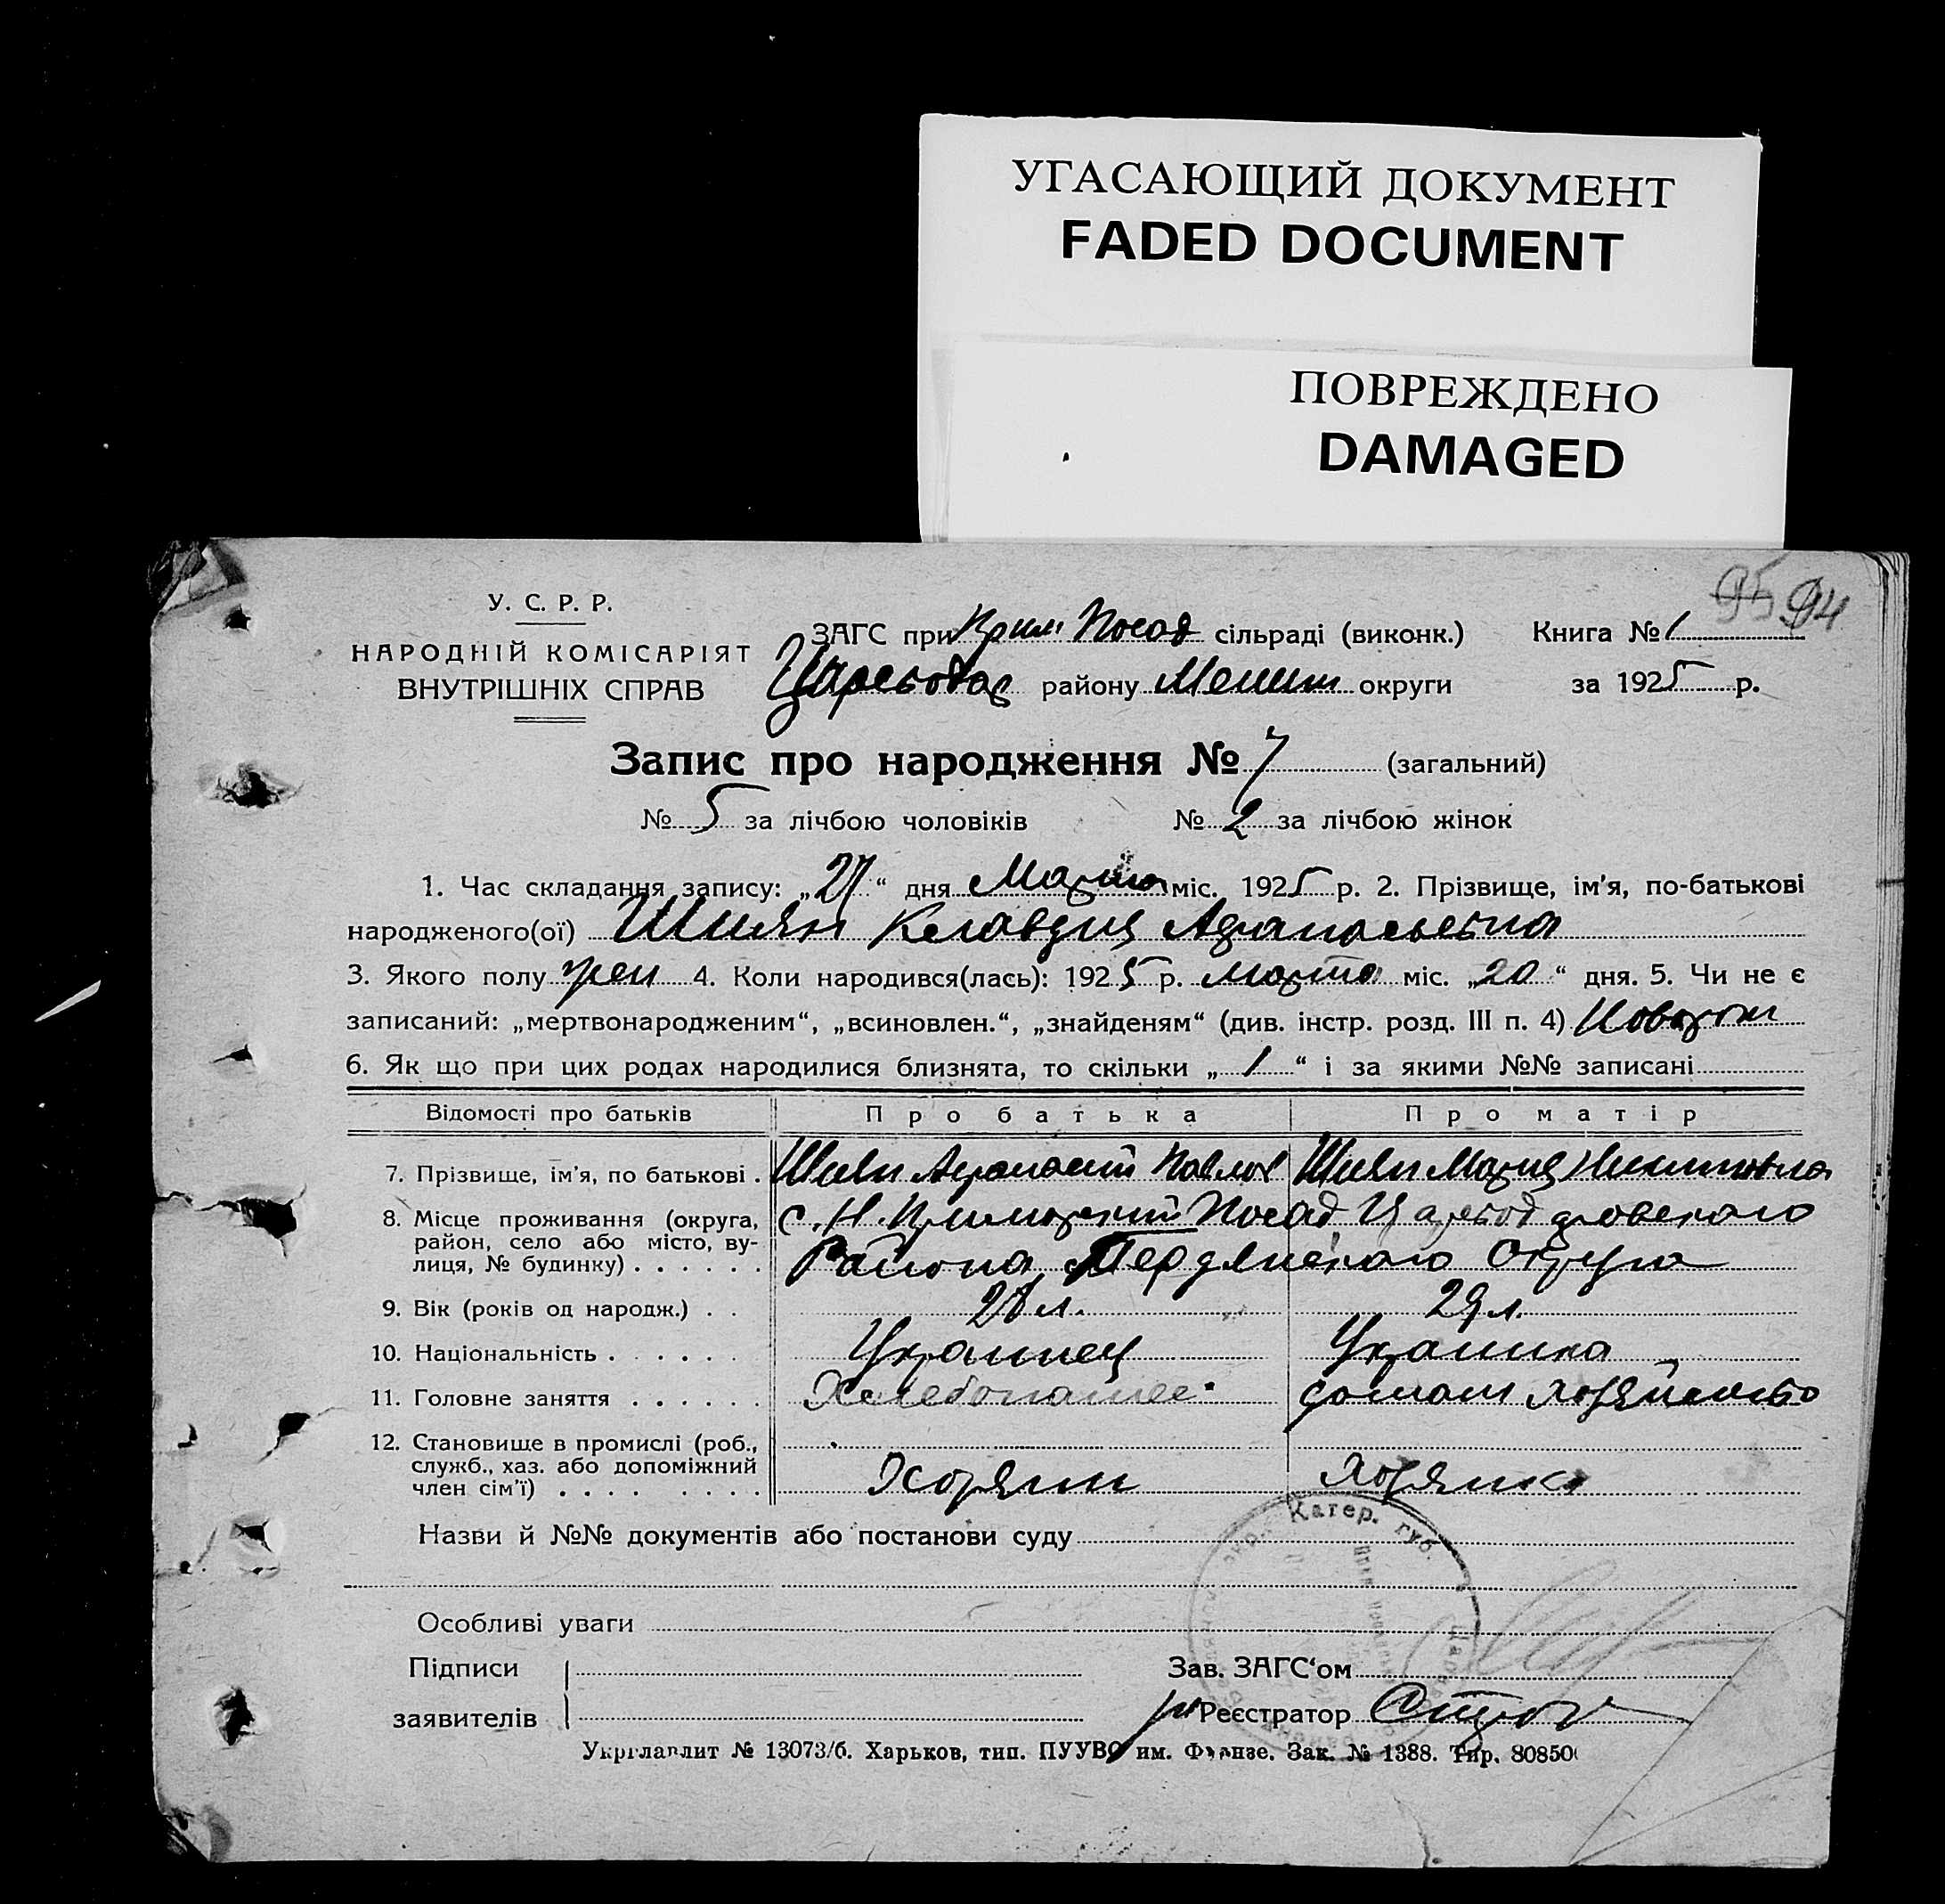 УГАСАЮЩИЙ ДОКУМЕНТ
FADED DOCUMENT
ПОВРЕЖДЕНО
DAMAGED
95 94
У. С. Р. Р.
НАРОДНІЙ КОМІСАРІЯТ
ВНУТРІШНІХ СПРАВ
ЗАГС при Прим Посад сільраді (виконк.) Книга № 1
району Мелит округи за 1925 р.
Запис про народження № 7 (загальний)
№ 5 за лічбою чоловіків № 2 за лічбою жінок
1. Час складання запису: „27“ дня Марта міс. 1925 р. 2. Прізвище, ім'я, по-батькові
народженого(ої) Шиян Клавдия Афанасьевна
3. Якого полу жен 4. Коли народився(лась): 1925 р. марта міс. „20“ дня. 5. Чи не є
записаний: „мертвонародженим“, „всиновлен.“, „знайденям“ (див. інстр. розд. III п. 4)
6. Як що при цих родах народилися близнята, то скільки „1“ і за якими №№ записані
Відомості про батьків Про батька Про матір
7. Прізвище, ім'я, по батькові . Шиян Афанасий Павлов Шиян Мария Никитовна
8. Місце проживання (округа, с. Н. Приморский Посад
район, село або місто, ву-
лиця, № будинку) . . . . . . Района Бердянского Округа
9. Вік (років од народж.) . . 28 л. 29 л.
10. Національність . . . . . . Украинец Украинка
11. Головне заняття . . . . . . Хлебопашес. домаш хозяйство
12. Становище в промислі (роб.,
служб., хаз. або допоміжний
член сім'ї) . . . . . . . . Хозяин Хозяйка
Назви й №№ документів або постанови суду
Катер. губ.
Особливі уваги
Підписи
заявителів
Зав. ЗАГС‘ом
Реєстратор
Укрглавлит № 13073/6. Харьков, тип. ПУУВО им. Фрунзе. Зак. № 1388. Тир. 80850